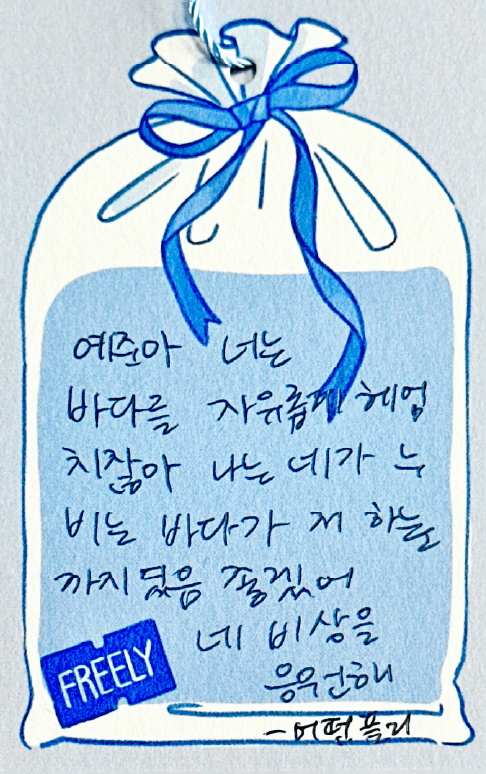 예준아 너는
바다를 자유롭게 헤엄
치잖아 나는 네가 누
비는 바다가 저 하늘
까지 됐음 좋겠어
네 비상을
응원해
FREELY
-어떤플리